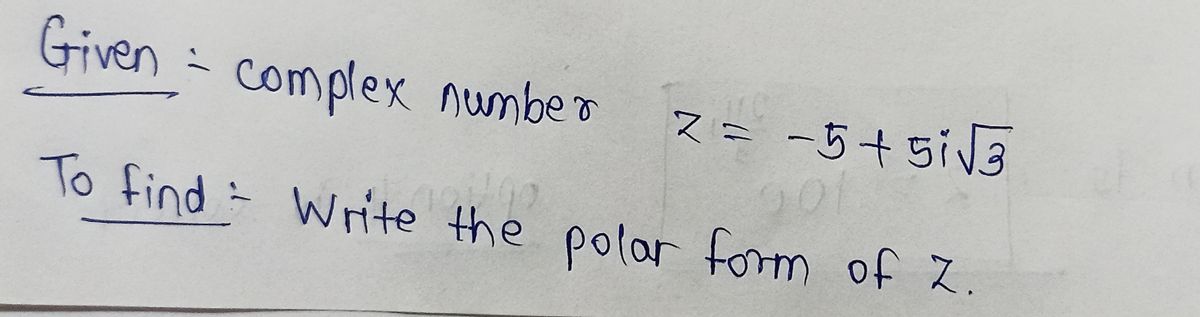 Given :- complex number z = -5 + 5i√3
To find :- Write the polar form of z.